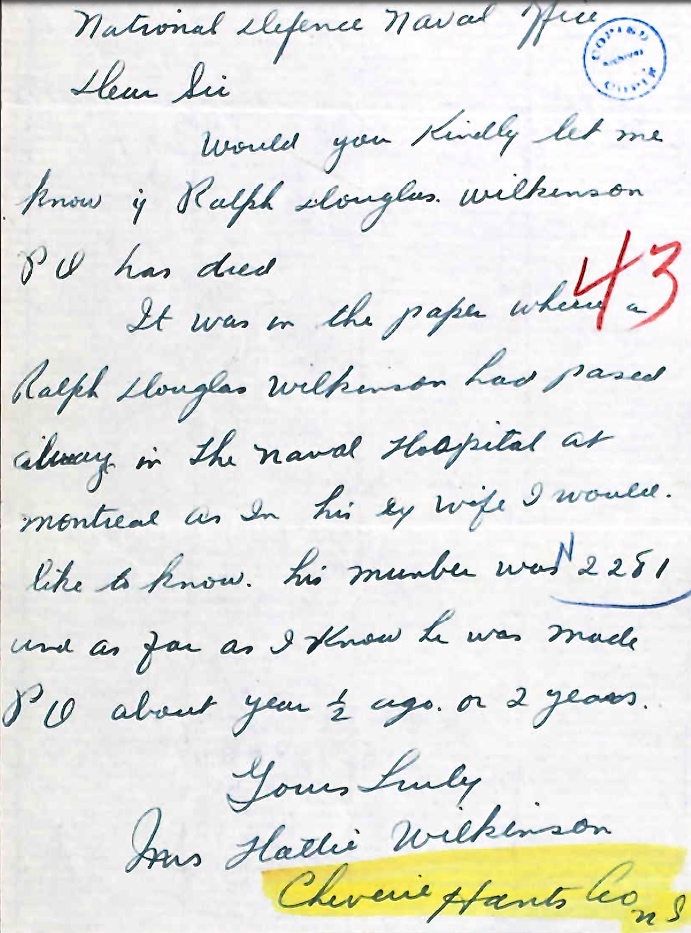 National Defence Naval Office
COPIED
COPIÉ
Dear Sir
Would you Kindly let me
know if Ralph Douglas. Wilkinson
P O has died
43
It was in the paper where a
Ralph Douglas Wilkinson had pased
alway in the naval Hospital at
montreal as Im his ex wife I would.
like to know. his munber was N 2281
and as far as I Know he was made
P O about year ½ ago. or 2 years.
Yours Truly
Mrs Hattie Wilkinson
Cheverie Hants Co
n S